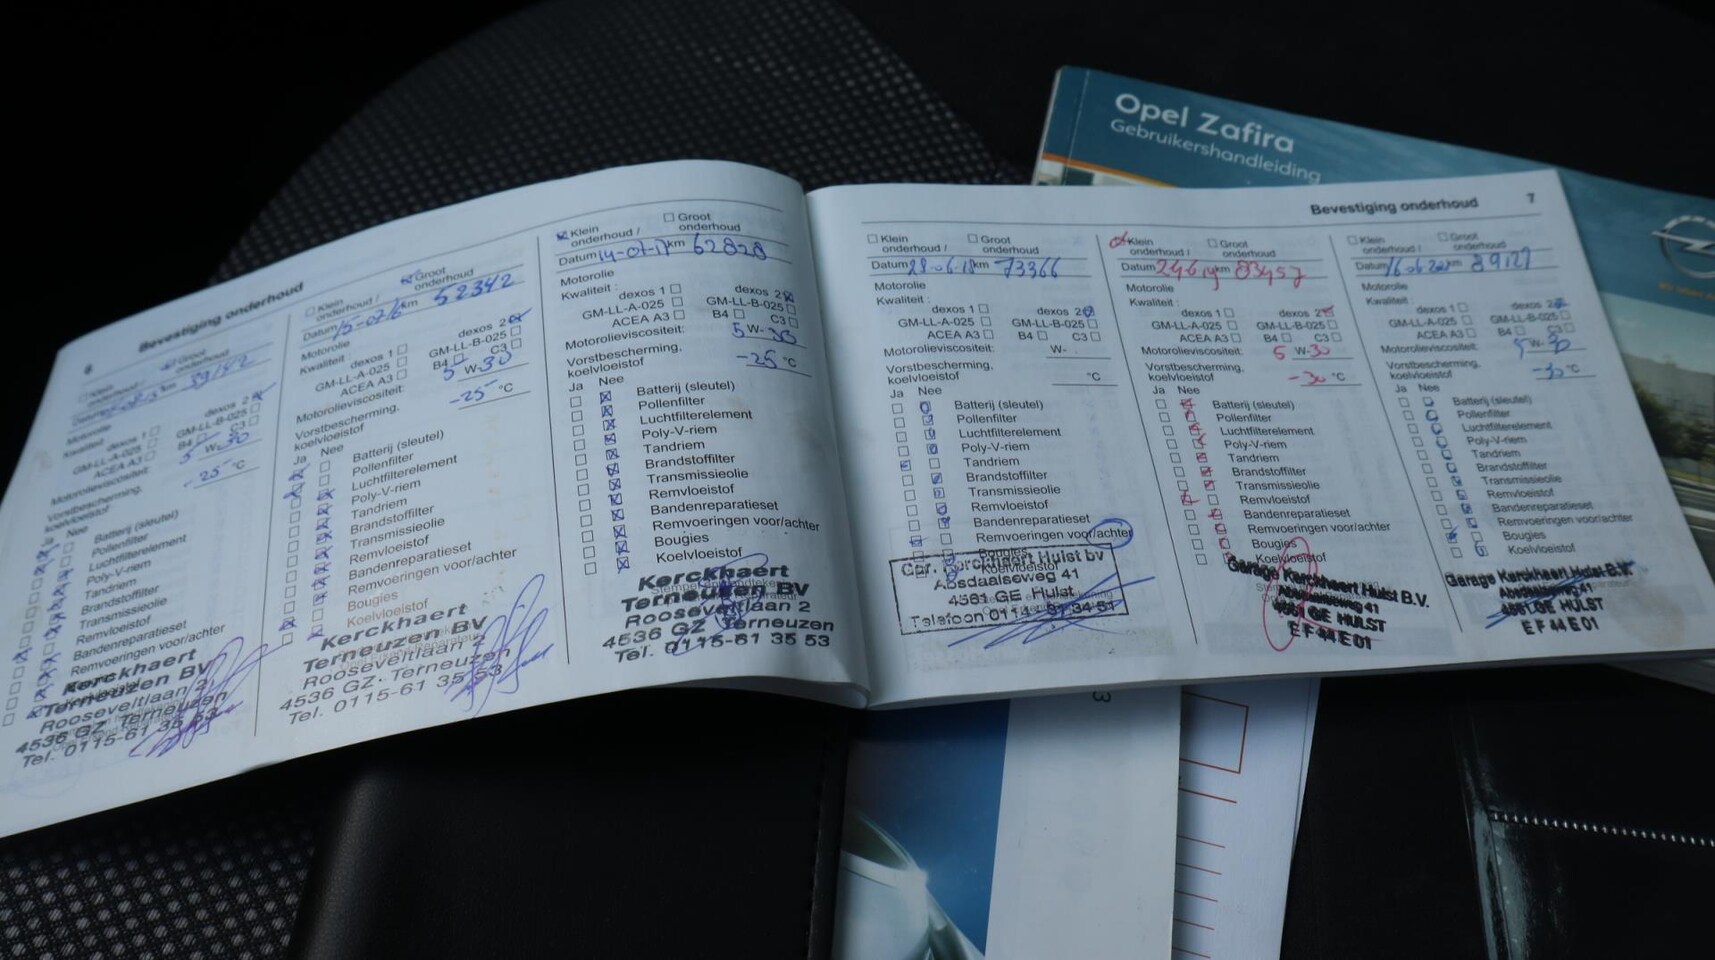 Opel Zafira
Gebruikershandleiding
6
Bevestiging onderhoud
Groot
onderhoud
Klein
onderhoud /
km
Motorolie
Kwaliteit :
dexos 1 dexos 2
GM-LL-A-025 GM-LL-B-025
ACEA A3 B4 C3
Motorolieviscositeit: 5 W-30
Vorstbescherming,
koelvloeistof -25 °C
Ja Nee
Batterij (sleutel)
Pollenfilter
Luchtfilterelement
Poly-V-riem
Tandriem
Brandstoffilter
Transmissieolie
Remvloeistof
Bandenreparatieset
Remvoeringen voor/achter
Kerckhaert
Terneuzen BV
Rooseveltlaan 2
4536 GZ Terneuzen
Tel. 0115-61 35 53
Klein Groot
onderhoud / onderhoud
Datum 15-07-16 km 52342
Motorolie
Kwaliteit :
dexos 1 dexos 2
GM-LL-A-025 GM-LL-B-025
ACEA A3 B4 C3
Motorolieviscositeit: 5 W-30
Vorstbescherming,
koelvloeistof -25 °C
Ja Nee
Batterij (sleutel)
Pollenfilter
Luchtfilterelement
Poly-V-riem
Tandriem
Brandstoffilter
Transmissieolie
Remvloeistof
Bandenreparatieset
Remvoeringen voor/achter
Bougies
Koelvloeistof
Kerckhaert
Terneuzen BV
Rooseveltlaan 2
4536 GZ. Terneuzen
Tel. 0115-61 35 53
Klein Groot
onderhoud / onderhoud
Datum 14-07-17 km 62828
Motorolie
Kwaliteit :
dexos 1 dexos 2
GM-LL-A-025 GM-LL-B-025
ACEA A3 B4 C3
Motorolieviscositeit: 5 W-30
Vorstbescherming,
koelvloeistof -25 °C
Ja Nee
Batterij (sleutel)
Pollenfilter
Luchtfilterelement
Poly-V-riem
Tandriem
Brandstoffilter
Transmissieolie
Remvloeistof
Bandenreparatieset
Remvoeringen voor/achter
Bougies
Koelvloeistof
Kerckhaert
Terneuzen BV
Rooseveltlaan 2
4536 GZ Terneuzen
Tel. 0115-61 35 53
Bevestiging onderhoud 7
Klein Groot
onderhoud / onderhoud
Datum 28-06-18 km 73366
Motorolie
Kwaliteit :
dexos 1 dexos 2
GM-LL-A-025 GM-LL-B-025
ACEA A3 B4 C3
Motorolieviscositeit: W-
Vorstbescherming,
koelvloeistof °C
Ja Nee
Batterij (sleutel)
Pollenfilter
Luchtfilterelement
Poly-V-riem
Tandriem
Brandstoffilter
Transmissieolie
Remvloeistof
Bandenreparatieset
Remvoeringen voor/achter
Bougies
Kerckhaert Hulst bv
Absdaalseweg 41
4561 GE Hulst
Telefoon
Klein Groot
onderhoud / onderhoud
Datum 24-6-19 km 83457
Motorolie
Kwaliteit :
dexos 1 dexos 2
GM-LL-A-025 GM-LL-B-025
ACEA A3 B4 C3
Motorolieviscositeit: 5 W-30
Vorstbescherming,
koelvloeistof -30 °C
Ja Nee
Batterij (sleutel)
Pollenfilter
Luchtfilterelement
Poly-V-riem
Tandriem
Brandstoffilter
Transmissieolie
Remvloeistof
Bandenreparatieset
Remvoeringen voor/achter
Bougies
Koelvloeistof
Garage Kerckhaert Hulst B.V.
Absdaalseweg 41
4561 GE HULST
EF44E01
Klein Groot
onderhoud / onderhoud
Datum 16-06-20 km 89127
Motorolie
Kwaliteit :
dexos 1 dexos 2
GM-LL-A-025 GM-LL-B-025
ACEA A3 B4 C3
Motorolieviscositeit: 5 W-30
Vorstbescherming,
koelvloeistof -30 °C
Ja Nee
Batterij (sleutel)
Pollenfilter
Luchtfilterelement
Poly-V-riem
Tandriem
Brandstoffilter
Transmissieolie
Remvloeistof
Bandenreparatieset
Remvoeringen voor/achter
Bougies
Koelvloeistof
Garage Kerckhaert Hulst B.V.
Absdaalseweg 41
4561 GE HULST
EF44E01